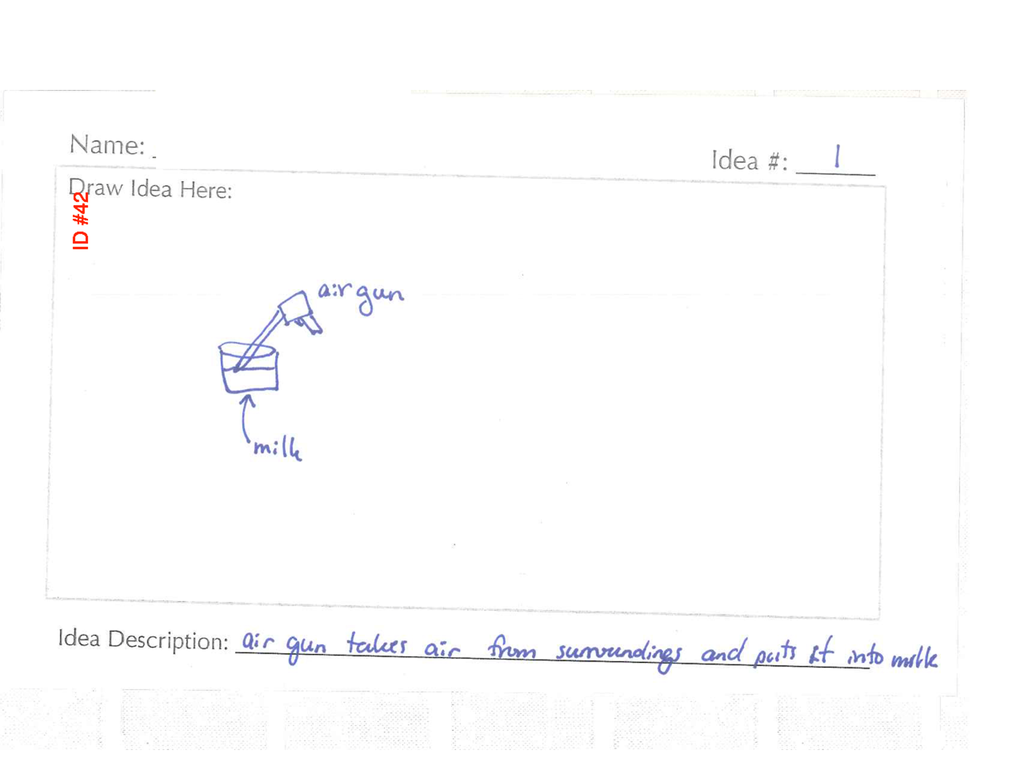 Name:
Idea #: 1
Draw Idea Here:
ID #42
air gun
milk
Idea Description: air gun takes air from surroundings and puts it into milk